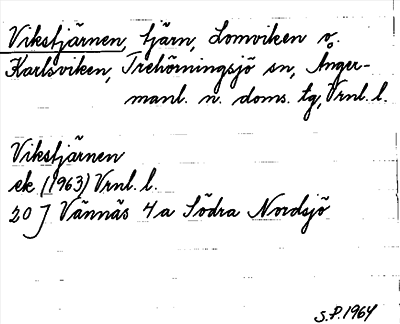 Vikstjärnen, tjärn, Lomviken o.
Karlsviken, Trehörningsjö sn, Ånger-
manl. n. doms. tg, Vrnl. l.
Vikstjärnen
ek (1963) Vrnl. l.
20 J Vännäs 4a Södra Nordsjö
S.P. 1964